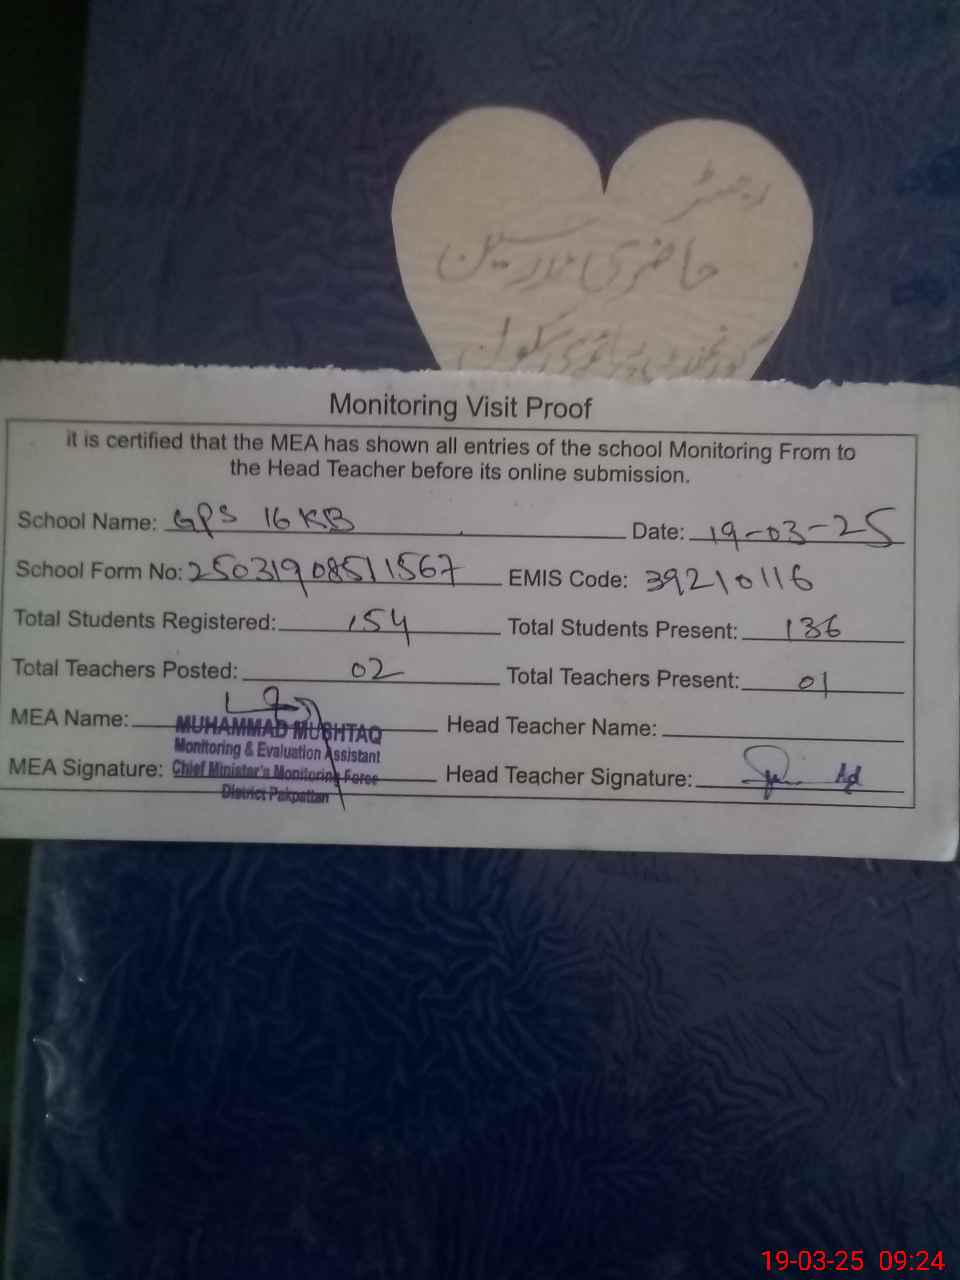 رجسٹر
حاضری مدرسین
گورنمنٹ پرائمری سکول
Monitoring Visit Proof
it is certified that the MEA has shown all entries of the school Monitoring From to
the Head Teacher before its online submission.
School Name: GPS 16 KB Date: 19-03-25
School Form No: 25031908511567 EMIS Code: 39210116
Total Students Registered: 154 Total Students Present: 136
Total Teachers Posted: 02 Total Teachers Present: 01
MEA Name: MUHAMMAD MUSHTAQ Head Teacher Name:
Monitoring & Evaluation Assistant
MEA Signature: Chief Minister's Monitoring Force Head Teacher Signature:
District Pakpattan
19-03-25 09:24